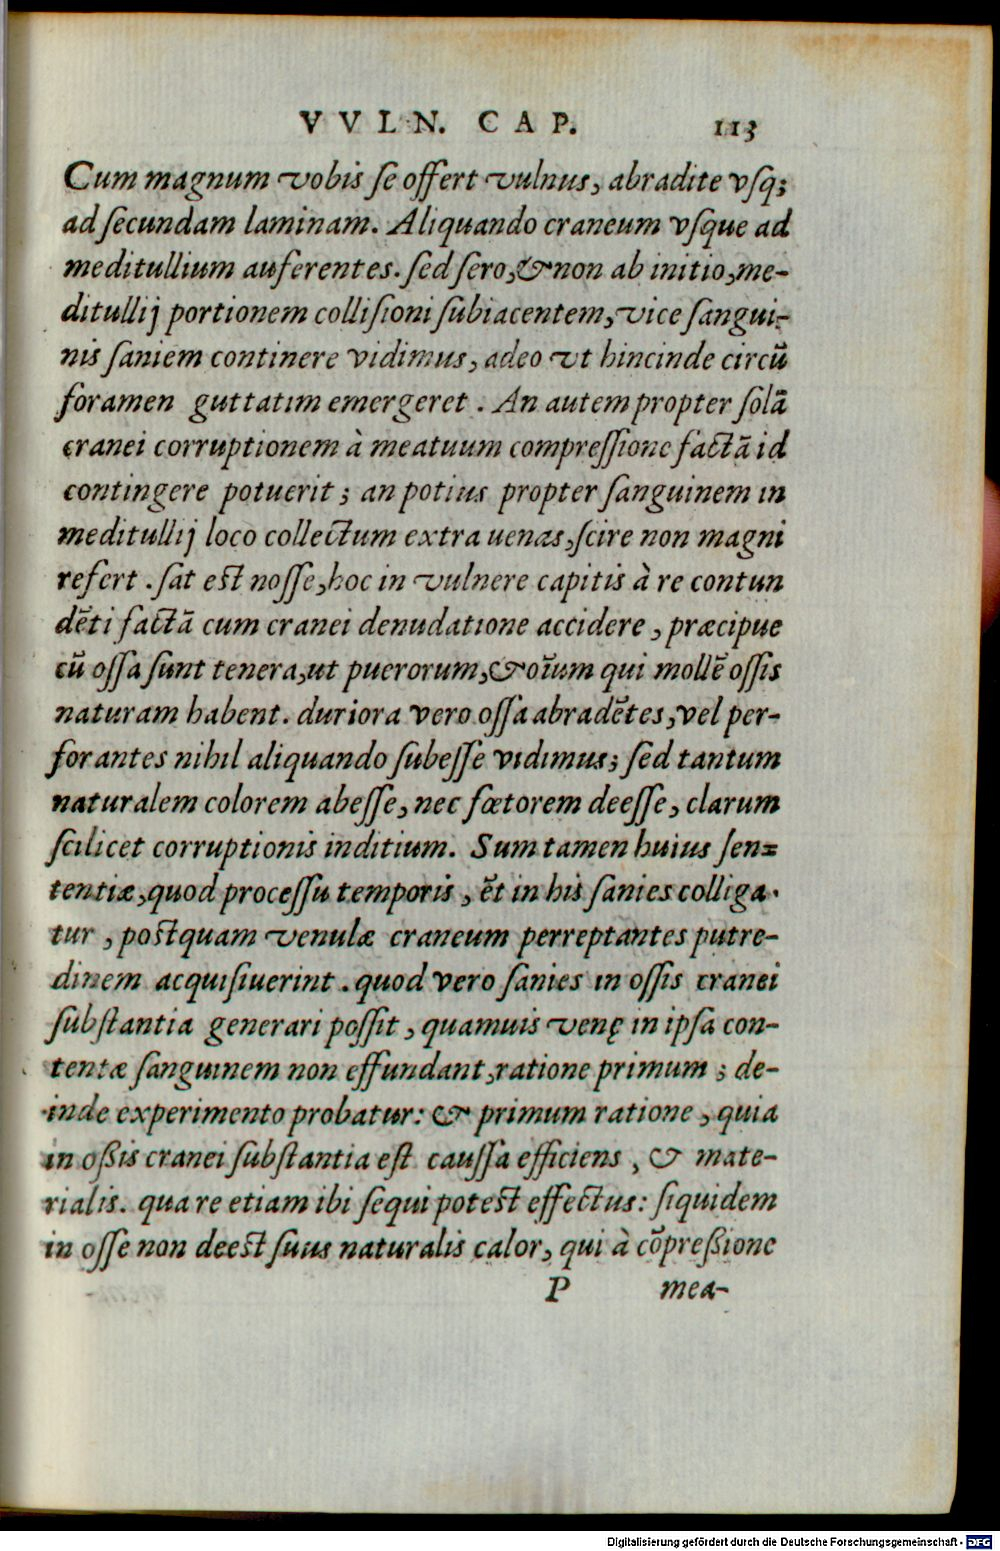 VVLN. CAP. 113
Cum magnum vobis se offert vulnus, abradite vsq;
ad secundam laminam. Aliquando craneum vsque ad
meditullium auferentes. sed sero, & non ab initio, me-
ditullij portionem collisioni subiacentem, vice sangui-
nis saniem continere vidimus, adeo vt hincinde circũ
foramen guttatim emergeret. An autem propter solã
cranei corruptionem à meatuum compressione factã id
contingere potuerit; an potius propter sanguinem in
meditullij loco collectum extra uenas, scire non magni
refert. sat est nosse, hoc in vulnere capitis à re contun
dẽti factã cum cranei denudatione accidere, præcipue
cũ ossa sunt tenera, ut puerorum, & oĩum qui mollẽ ossis
naturam habent. duriora vero ossa abradẽtes, vel per-
forantes nihil aliquando subesse vidimus; sed tantum
naturalem colorem abesse, nec fœtorem deesse, clarum
scilicet corruptionis inditium. Sum tamen huius sen=
tentiæ, quod processu temporis, ẽt in his sanies colliga-
tur, postquam venulæ craneum perreptantes putre-
dinem acquisiuerint. quod vero sanies in ossis cranei
substantia generari possit, quamuis venę in ipsa con-
tentæ sanguinem non effundant, ratione primum; de-
inde experimento probatur: & primum ratione, quia
in oßis cranei substantia est caussa efficiens, & mate-
rialis. qua re etiam ibi sequi potest effectus: siquidem
in osse non deest suus naturalis calor, qui à cõpreßione
P mea-
Digitalisierung gefördert durch die Deutsche Forschungsgemeinschaft - DFG